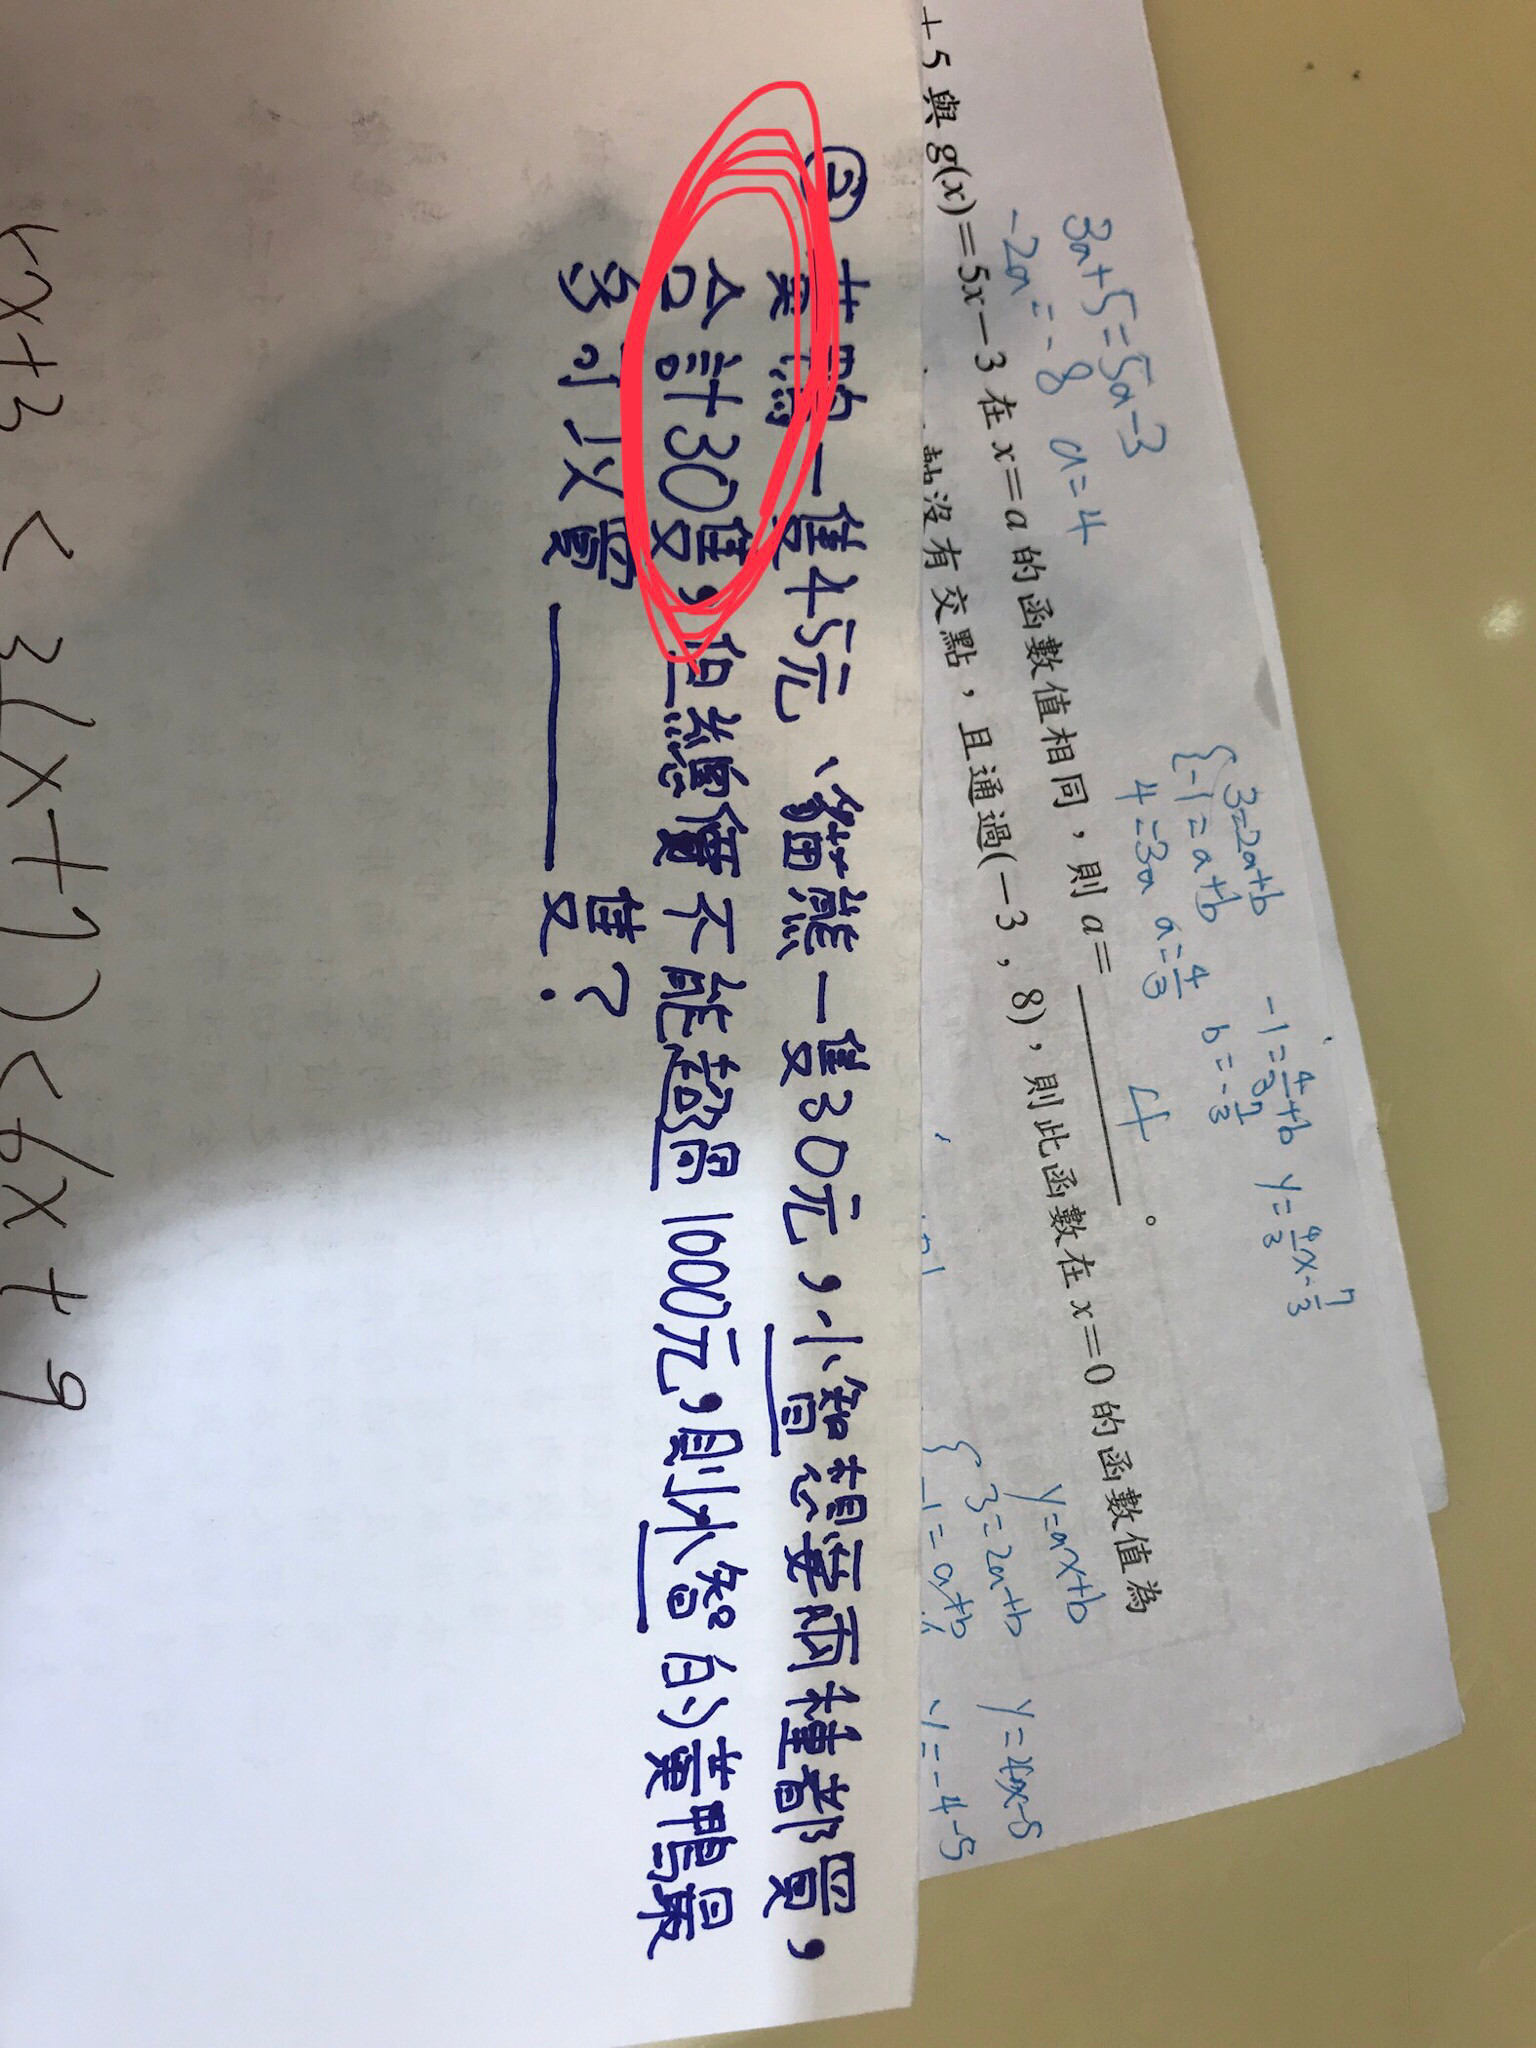 3a+5=5a-3
-2a=-8 a=4
3=2a+b
-1=a+b
4=3a a=4/3
-1=4/3+b y=4/3x-7/3
b=-7/3
+5與g(x)=5x-3在x=a的函數值相同，則a= 4 。
y=ax+b
3=2a+b
-1=a+b
y=-4-5
沒有交點，且通過(-3，8)，則此函數在x=0的函數值為
② 黃鴨一隻45元、貓熊一隻30元，小智想要兩種都買，
合計30隻，但總價不能超過1000元，則小智的黃鴨最
多可以買 隻？
x+3 < 3(x+1) < 6x+9